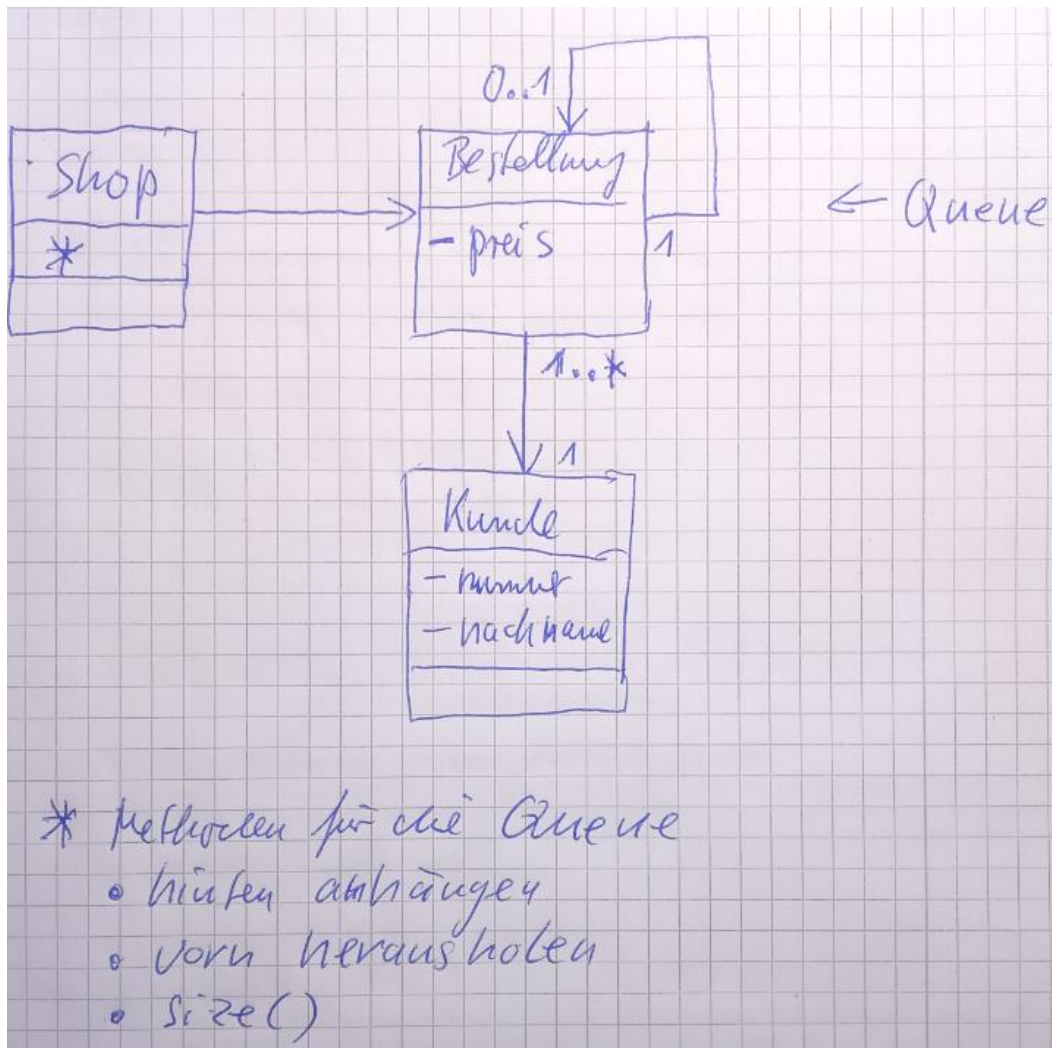 0..1
Shop
Bestellung
← Queue
*
- preis
1
1..*
1
Kunde
- nummer
- nachname
* Methoden für die Queue
• hinten anhängen
• vorn herausholen
• size()